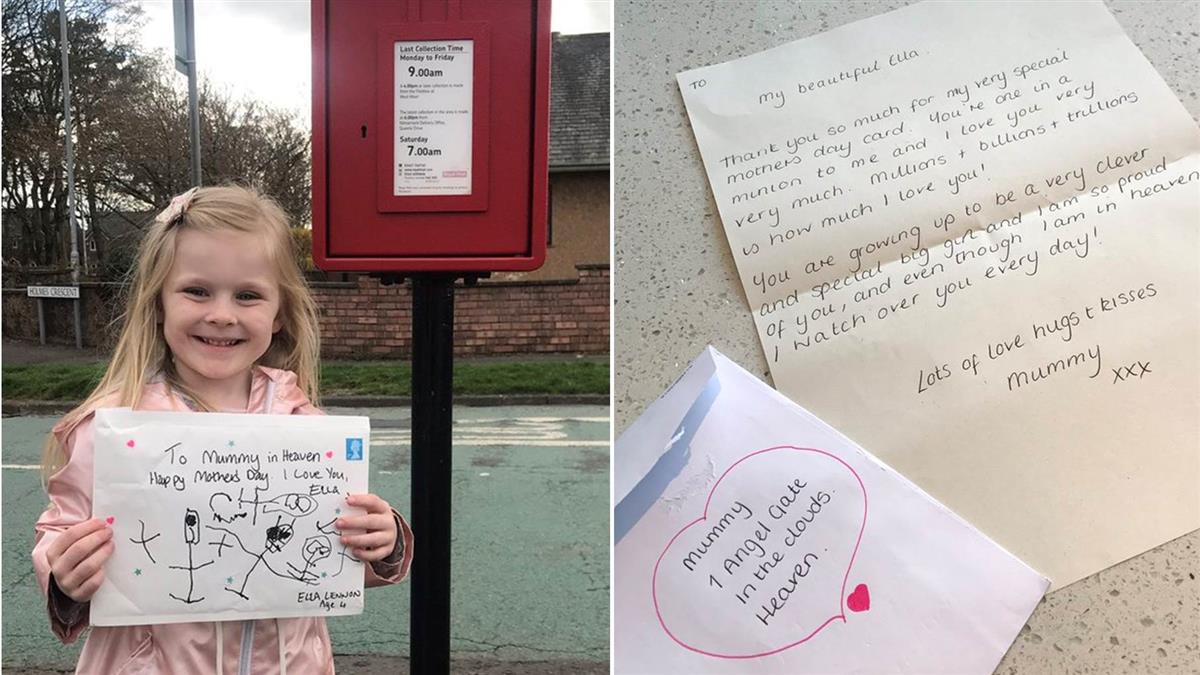 Last Collection Time
Monday to Friday
9.00am
Saturday
7.00am
Royal Mail
HOLMES CRESCENT
To Mummy in Heaven
Happy Mothers Day. I Love You,
Ella
ELLA LENNON
Age 4
TO
my beautiful Ella.
Thank you so much for my very special
mothers day card. You're one in a
minion to me and I love you very
very much. Millions + billions + trillions
is how much I love you!
You are growing up to be a very clever
and special big girl and I am so proud
of you, and even though I am in heaven
I watch over you every day!
Lots of love hugs + kisses
Mummy
xxx
Mummy
1 Angel Gate
In the clouds.
Heaven.